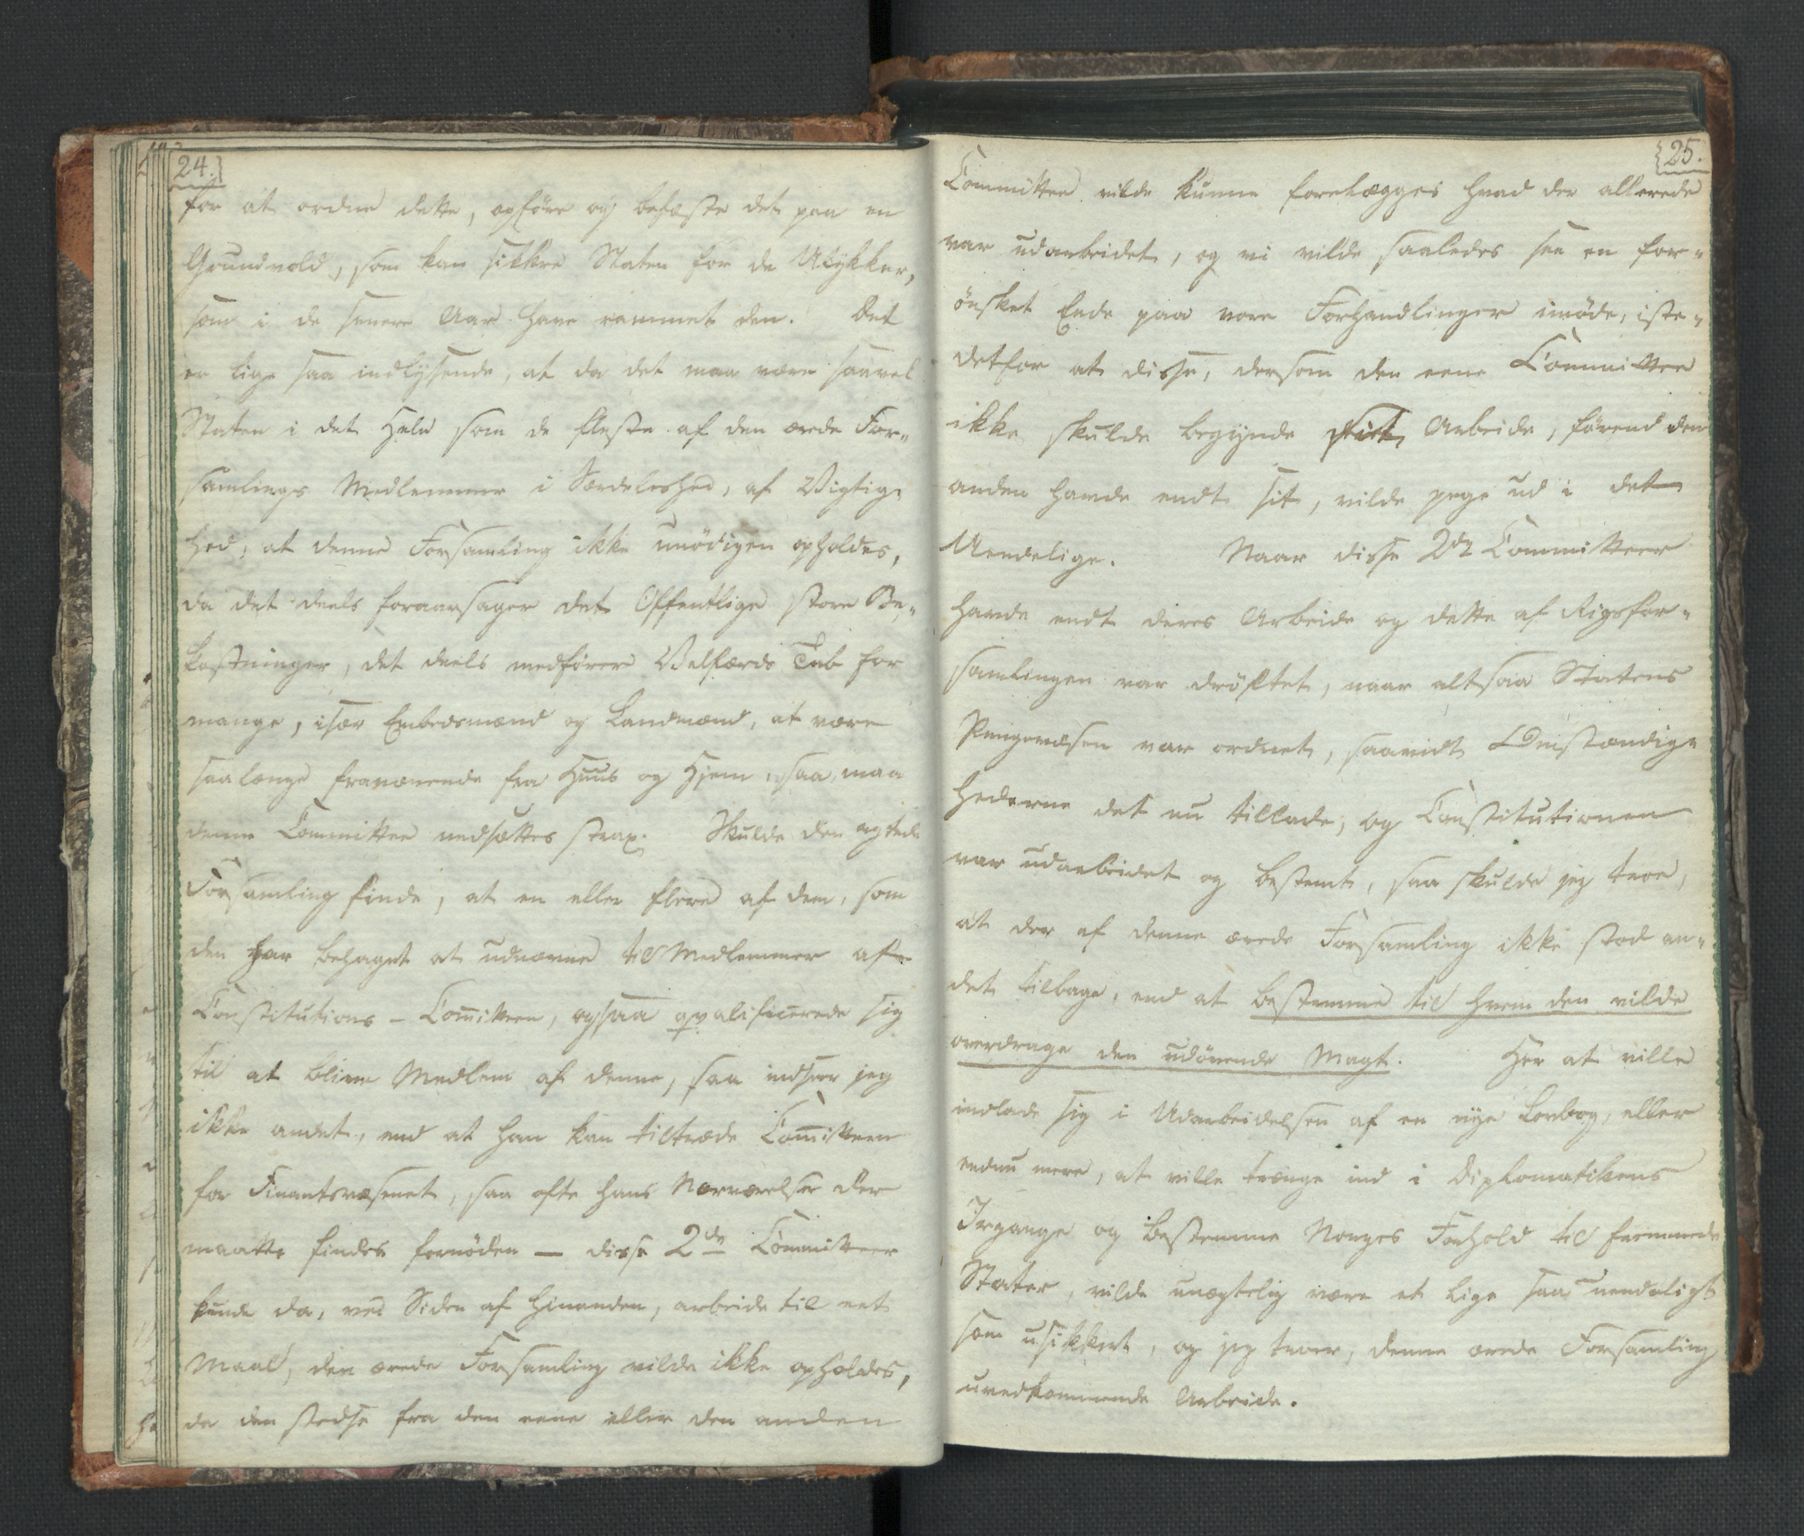 24.
for at ordne dette, opföre og befæste det paa en
Grundvold, som kan sikkre Staten for de Ulykker,
som i de senere Aar have rammet den. Det
er lige saa indlysende, at da det maa være saavel
Staten i det Hele som de fleste af den ærede For-
samlings Medlemmer i Særdeleshed, af Vigtig-
hed, at denne Forsamling ikke unödigen opholdes,
da det deels foraarsager det Offentlige store Be-
kostninger, det deels medförer Velfærds Tab for
mange, især Embedsmænd og Landmænd, at være
saalænge fraværende fra Huus og Hjem, saa maa
denne Committee nedsættes strax. Skulde den agtede
Forsamling finde, at en eller flere af dem, som
den har behaget at udnævne til Medlemmer af
Constitutions-Com̅itteen, ogsaa qvalificerede sig
til at blive Medlem af denne, saa indseer jeg
ikke andet, end at han kan tiltræde Com̅itteen
for Finantsvæsenet, saa ofte hans Nærværelse der
maatte findes fornöden — disse 2de Committeer
kunde da, ved Siden af hinanden, arbeide til eet
Maal, den ærede Forsamling vilde ikke opholdes,
da den stedse fra den eene eller den anden
25.
Committee vilde kunne forelægges hvad der allerede
var udarbeidet, og vi vilde saaledes see en for-
önsket Ende paa vore Forhandlinger imöde, iste-
detfor at disse, dersom den eene Committee
ikke skulde begynde sit Arbeide, förend den
anden havde endt sit, vilde pege ud i det
Uendelige. Naar disse 2de Committeer
havde endt deres Arbeide og dette af Rigsfor-
samlingen var dröftet, naar altsaa Statens
Pengevæsen var ordnet, saavidt Omstændig-
hederne det nu tillade, og Constitutionen
var udarbeidet og bestemt, saa skulde jeg troe,
at der af denne ærede Forsamling ikke stod an-
det tilbage, end at bestemme til hvem den vilde
overdrage den udövende Magt. Her at ville
indlade sig i Udarbeidelsen af en nye Lovbog, eller
endnu mere, at ville trænge ind i Diplomatikens
Irgange og bestemme Norges Forhold til fremmede
Stater, vilde unægtelig være et lige saa uendeligt
som usikkert, og jeg troer, denne ærede Forsamling
uvedkommende Arbeide.